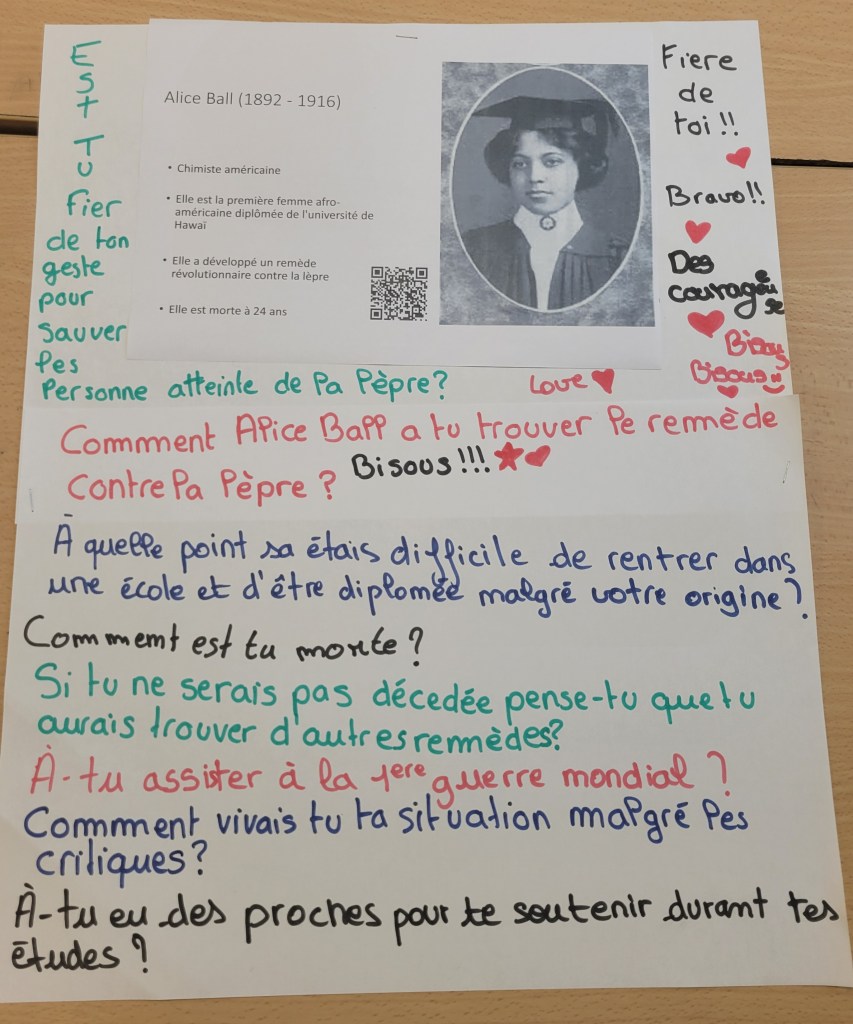 Alice Ball (1892 - 1916)
• Chimiste américaine
• Elle est la première femme afro-
américaine diplômée de l'université de
Hawaï
• Elle a développé un remède
révolutionnaire contre la lèpre
• Elle est morte à 24 ans
EST
TU
fier
de ton
geste
pour
sauver
les
personne atteinte de la lèpre?
Fiere
de
toi!!
Bravo!!
Des
courageuse
Bisous
Bisous
Love
Comment Alice Ball a tu trouver le remède
contre la lèpre?
Bisous!!!
À quelle point sa étais difficile de rentrer dans
une école et d'être diplomée malgré votre origine?
Comment est tu morte?
Si tu ne serais pas décedée pense-tu que tu
aurais trouver d'autres remèdes?
À-tu assister à la 1ere guerre mondial?
Comment vivais tu ta situation malgré les
critiques?
À-tu eu des proches pour te soutenir durant tes
études?